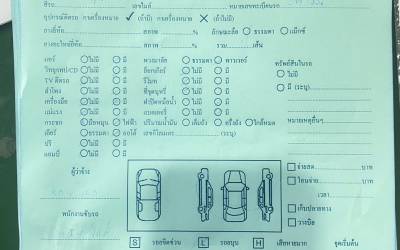 เลขไมล์
หมายเลขทะเบียนรถ
อุปกรณ์ติดรถ กาเครื่องหมาย ✓ (ถ้ามี) กาเครื่องหมาย ✗ (ถ้าไม่มี)
ยางยี่ห้อ สภาพ % ลักษณะล้อ ธรรมดา แม็กซ์
ยางอะไหล่ยี่ห้อ สภาพ % รวม เส้น
แอร์ ไม่มี มี พวงมาลัย ธรรมดา พาวเวอร์ ทรัพย์สินในรถ
วิทยุเทป/CD ไม่มี มี ไม่มี มี ไม่มี
TV ติดรถ ไม่มี มี รีโมท ไม่มี มี มี (ระบุ)
ลำโพง ไม่มี มี ที่จุดบุหรี่ ไม่มี มี
เครื่องมือ ไม่มี มี ฝาปิดหม้อน้ำ ไม่มี มี
แม่แรง ไม่มี มี แบตเตอรี่ ไม่มี มี
กระจก มือหมุน ไฟฟ้า ปริมาณน้ำมัน เต็มถัง ครึ่งถัง ใกล้หมด หมายเหตุอื่นๆ
เกียร์ ธรรมดา ออโต้ เลขกิโลเมตร (ระบุ)
ไม่มี มี
ไม่มี มี
ผู้ว่าจ้าง
จ่ายสด บาท
โอนจ่าย บาท
เวลา
เก็บปลายทาง
วางบิล
พนักงานขับรถ
S รอยขีดข่วน L รอยบุบ H เสียหายมาก จุดเริ่มต้น